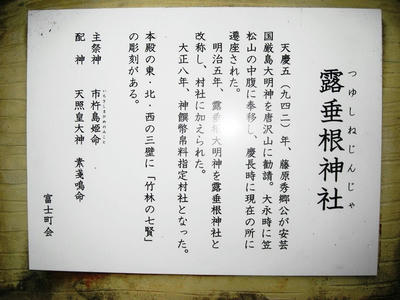 つゆしねじんじゃ
露垂根神社
天慶五（九四二）年、藤原秀郷公が安芸
国厳島大明神を唐沢山に勧請。大永時に笠
松山の中腹に奉移し、慶長時に現在の所に
遷座された。
明治五年、露垂根大明神を露垂根神社と
改称し、村社に加えられた。
大正八年、神饌幣帛料指定村社となった。
本殿の東・北・西の三壁に「竹林の七賢」
の彫刻がある。
主祭神　市杵島姫命
いちきしまひめのみこと
配　神　天照皇大神　素戔鳴命
富士町会